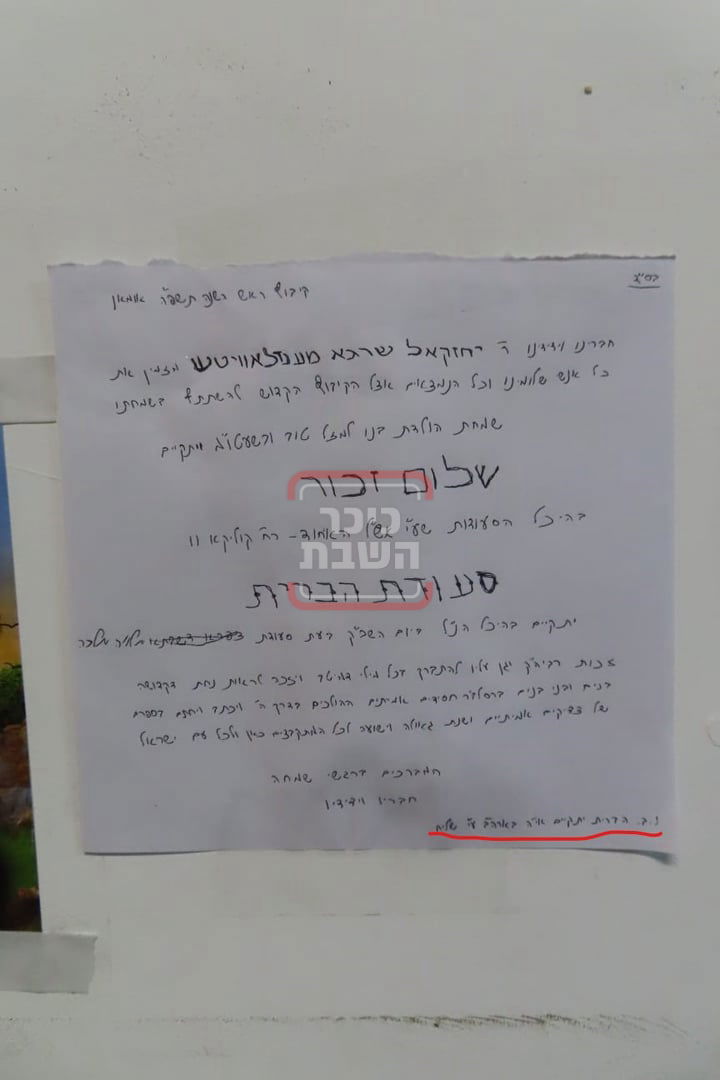 בס״ד
קיבוץ ראש השנה תשפ״ד אומאן
חברנו וידידנו ר׳ יחזקאל שרגא מענדלאוויטש מזמין את
כל אנש שלומינו וכל הנמצאים אצל הקיבוץ הקדוש להשתתף בשמחתו
שמחת הולדת בנו למזל טוב ובשעטו״מ ויתקיים
שלום זכור
בהיכל הסעודות שע״י האחוד - רח׳ קוליקא 11
סעודת הברית
יתקיים בהיכל הנ״ל ביום השב״ק בעת סעודת
זכות רביה״ק יגן עליו להתברך בכל מילי דמיטב ויזכה לראות נחת דקדושה
בנים ובני בנים ברסלב׳ר חסידים אמיתים ההולכים בדרך ה׳ ויכתב ויחתם בספרם
של צדיקים אמיתיים ושנת גאולה וישועה לכל המתקבצים כאן ולכל עם ישראל
המברכים ברגשי שמחה
חבריו וידידיו
נ.ב. הברית יתקיים אי״ה בארה״ב ע״י שליח
כיכר
השבת